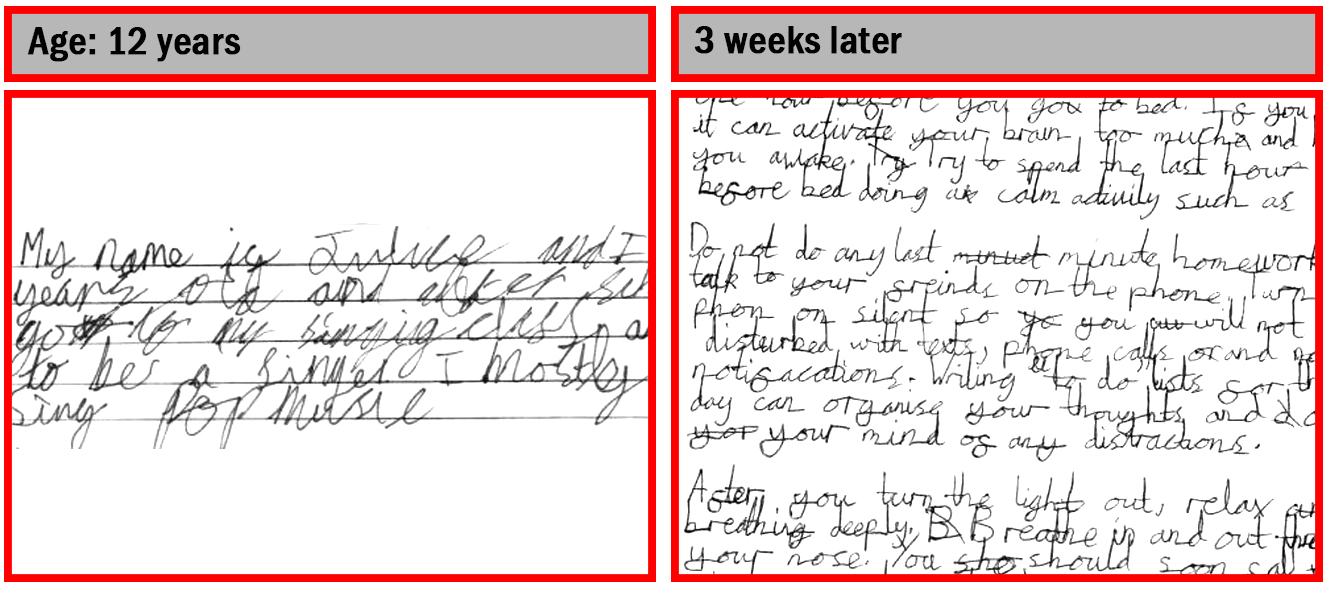 Age: 12 years
My name is and I
years old and after
go to my singing class
to be a singer I mostly
sing pop music
3 weeks later
before you gox to bed. If you
it can activate your brain too much and
you awake. Try Try to spend the last hour
before bed doing a calm activity such as
Do not do any last minuet minute homework
talk to your freinds on the phone. Turn
phon on silent so yo you will not
disturbed with texts, phone calls or and
notifacations. Writing "to do" lists for th
day can organise your thoughts and
yor your mind of any distractions.
After you turn the light out, relax
breathing deeply. B Breathe in and out
your nose. You sho should soon